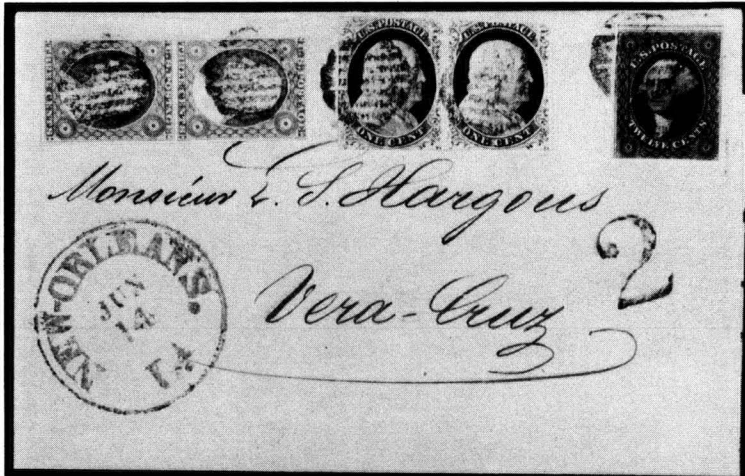 U.S. POSTAGE
ONE CENT
ONE CENT
U.S. POSTAGE
TWELVE CENTS
Monsieur L. S. Hargous
Vera-Cruz
2
NEW-ORLEANS.
JUN
14
LA